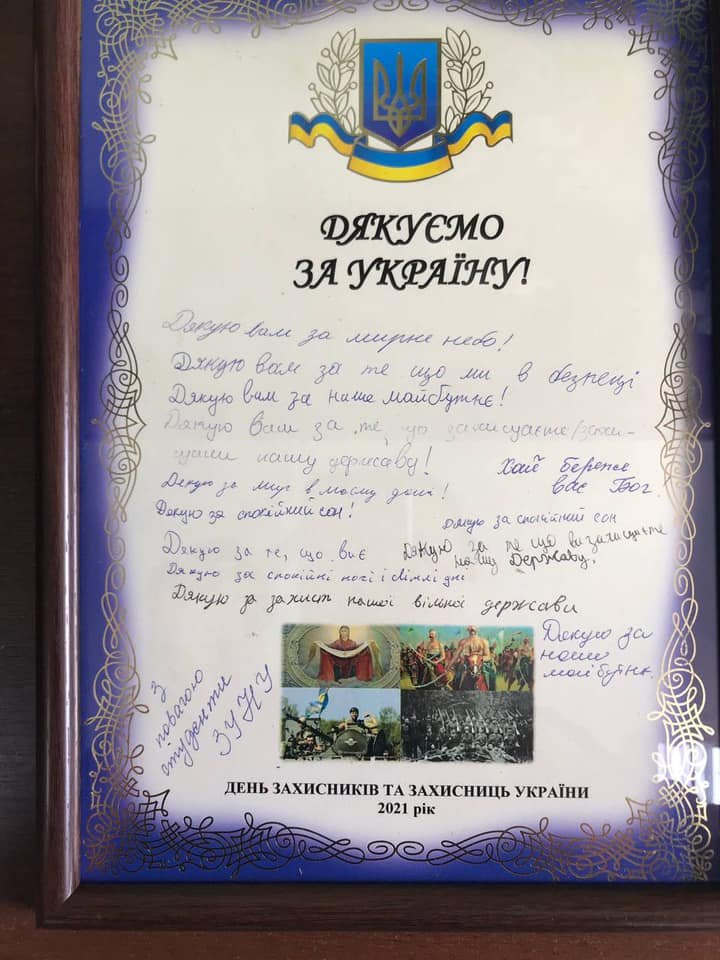 ДЯКУЄМО
ЗА УКРАЇНУ!
Дякую вам за мирне небо!
Дякую вам за те що ми в безпеці
Дякую вам за наше майбутнє!
Дякую вам за те, що захищаєте/захи-
щали нашу державу!
Хай береже
вас Бог.
Дякую за мир в моєму домі!
Дякую за спокійний сон!
Дякую за спокійний сон
Дякую за те, що ви є
Дякую за те що ви захищаєте
нашу Державу.
Дякую за спокійні ночі і світлі дні
Дякую за захист нашої вільної держави
Дякую за
наше
майбутнє.
З
повагою
студенти
ЗУНУ
ДЕНЬ ЗАХИСНИКІВ ТА ЗАХИСНИЦЬ УКРАЇНИ
2021 рік